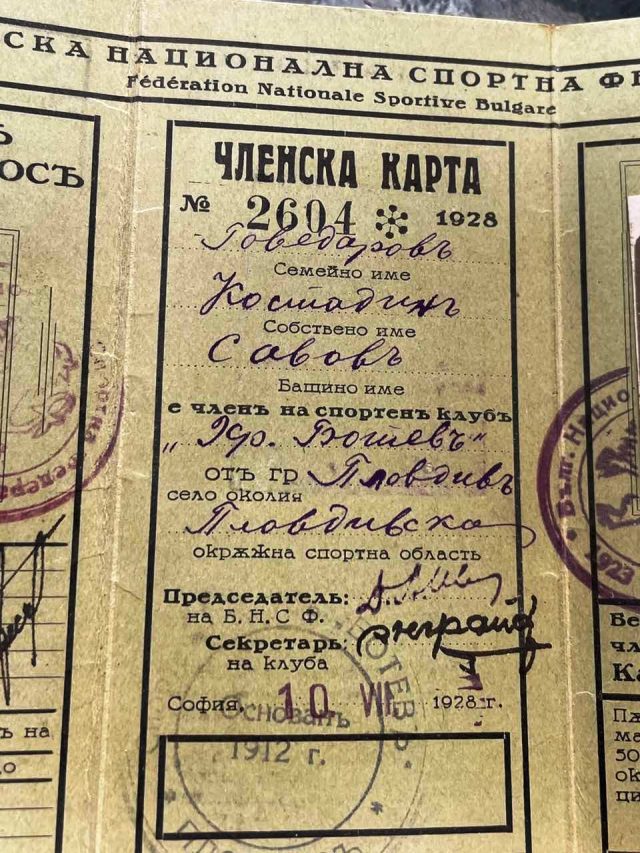 СКА НАЦИОНАЛНА СПОРТНА ФЕ
Fédération Nationale Sportive Bulgare
ЧЛЕНСКА КАРТА
№ 2604 1928
Говедаровъ
Семейно име
Костадинъ
Собствено име
Савовъ
Бащино име
е членъ на спортенъ клубъ
„Хр. Ботевъ"
отъ гр Пловдивъ
село околия
Пловдивска
окрѫжна спортна область
Председатель:
на Б. Н. С Ф.
Секретарь:
на клуба
София, 10 VII 1928 г.
БОТЕВЪ
Основанъ
1912 г.
ОСЪ
ъ на
Бъл. Национ
1923